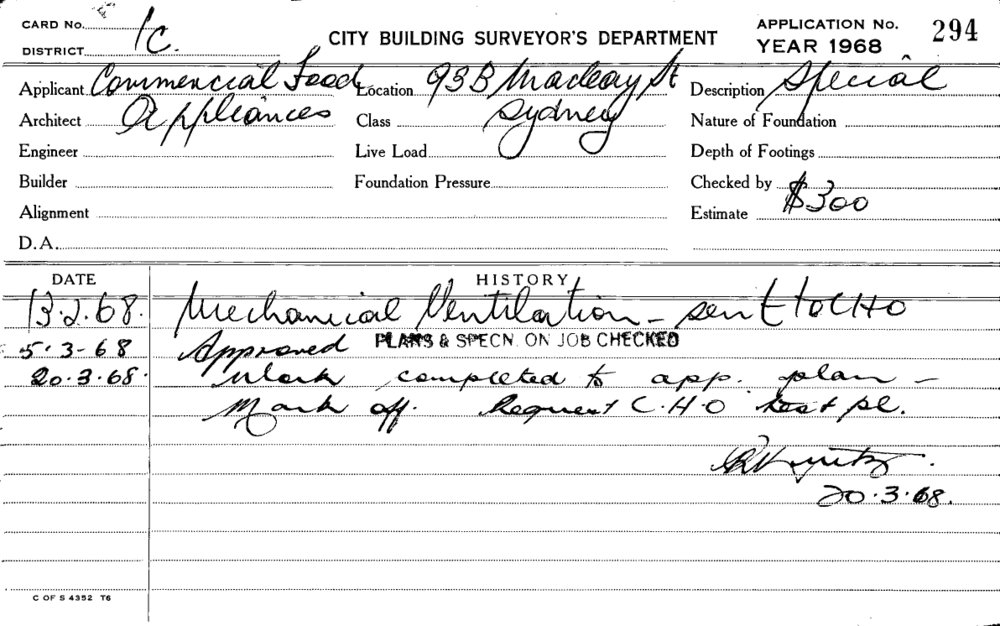 CARD No. APPLICATION No. 294
DISTRICT 1c. CITY BUILDING SURVEYOR'S DEPARTMENT YEAR 1968
Applicant Commercial Food Location 93B Macleay St Description Special
Architect Appliances Class Sydney Nature of Foundation
Engineer Live Load Depth of Footings
Builder Foundation Pressure Checked by
Alignment Estimate $300
D.A.
DATE HISTORY
13.2.68. Mechanical Ventilation - sent to CHO
5.3-68 Approved PLANS & SPECN. ON JOB CHECKED
20.3.68. Work completed to app. plan -
Mark off. Request C.H.O test pl.
20.3.68.
C OF S 4352 T6